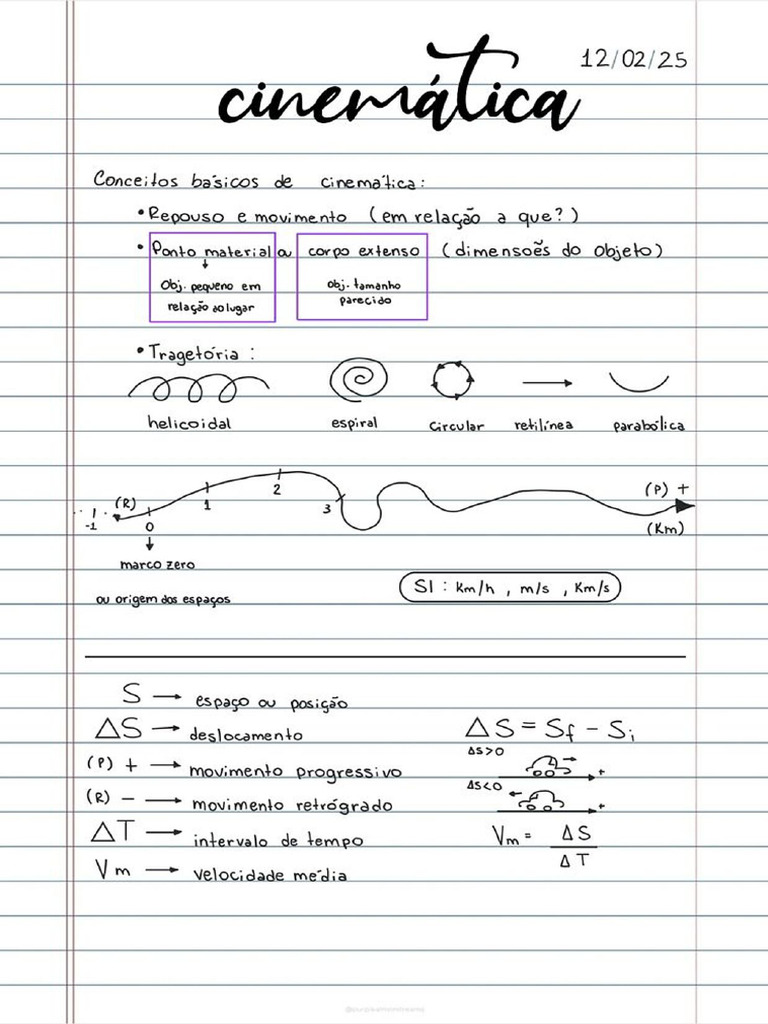 12/02/25
cinemática
Conceitos básicos de cinemática:
• Repouso e movimento (em relação a que?)
• Ponto material ou corpo extenso (dimensoẽs do objeto)
Obj. pequeno em
relação ao lugar
obj. tamanho
parecido
• Tragetória :
helicoidal espiral circular retilínea parabólica
-1 (R) 0 1 2 3 (P) +
(Km)
marco zero
ou origem dos espaços
SI : Km/h , m/s , Km/s
S → espaço ou posição
ΔS → deslocamento
ΔS = Sf - Si
(P) + → movimento progressivo
ΔS>0
+
(R) - → movimento retrógrado
ΔS<0
+
ΔT → intervalo de tempo
Vm = ΔS
ΔT
Vm → velocidade média